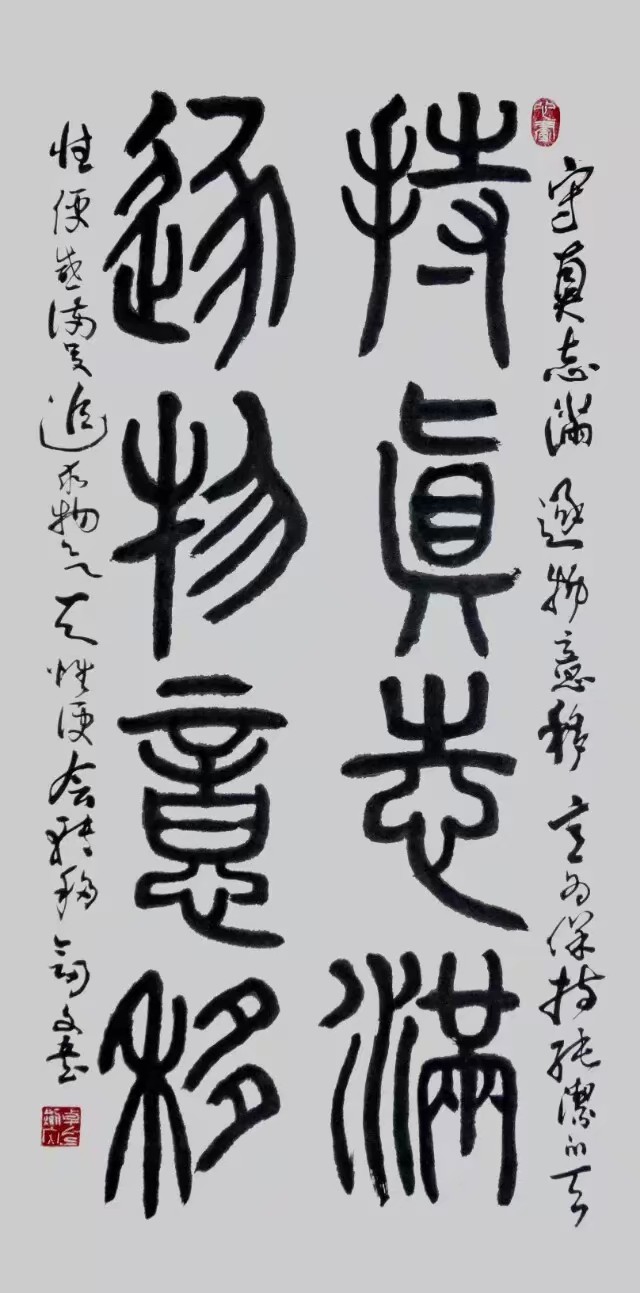 守真志满 逐物意移 意为保持纯洁的天
持眞志滿
逐物意移
性便感满足 追求物 天性便会转移 文书